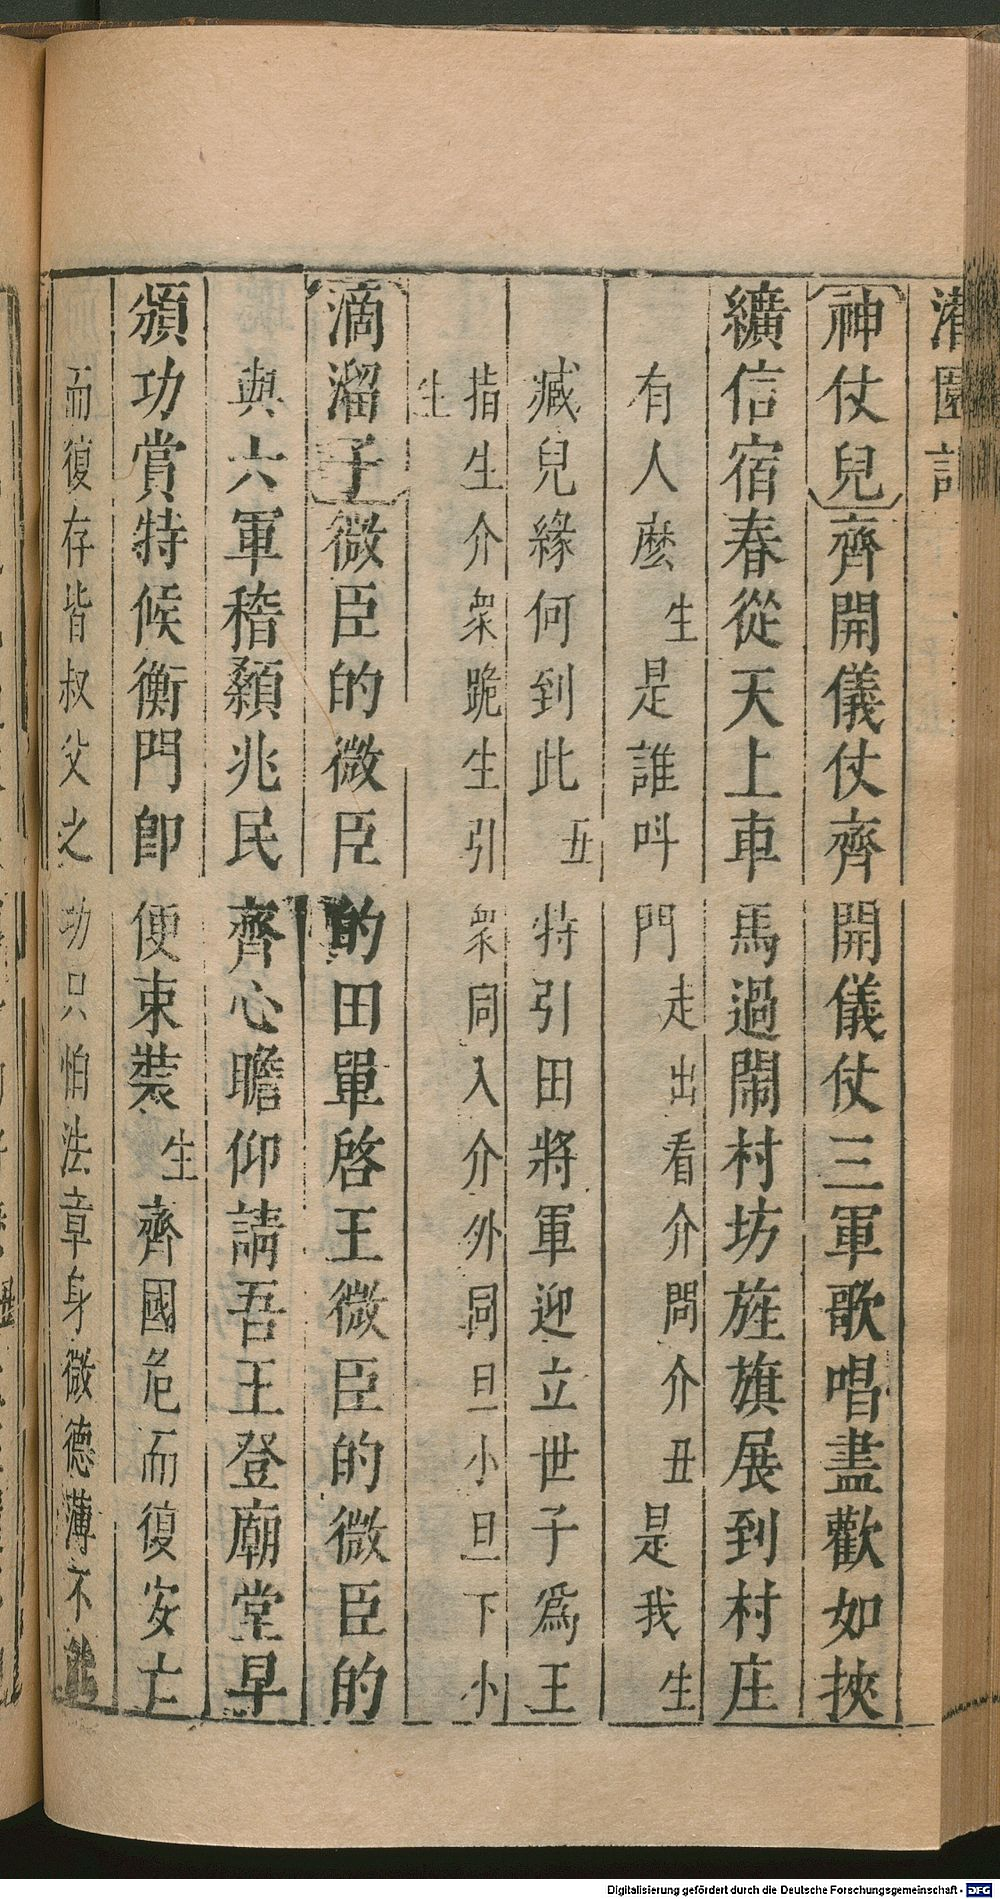 灌園記
神仗兒齊開儀仗齊開儀仗三軍歌唱盡歡如挾
纊信宿春從天上車馬過鬧村坊旌旗展到村庄
有人麽生是誰呌門走出看介問介丑是我生
臧兒緣何到此丑特引田將軍迎立世子爲王
指生介衆跪生引衆同入介外同旦小旦下小
生
滴溜子微臣的微臣的田單啓王微臣的微臣的
與六軍稽顙兆民齊心瞻仰請吾王登廟堂早
頒功賞特候衡門卽便束裝生齊國危而復安亡
而復存皆叔父之功只怕法章身微德薄不能
Digitalisierung gefördert durch die Deutsche Forschungsgemeinschaft - DFG